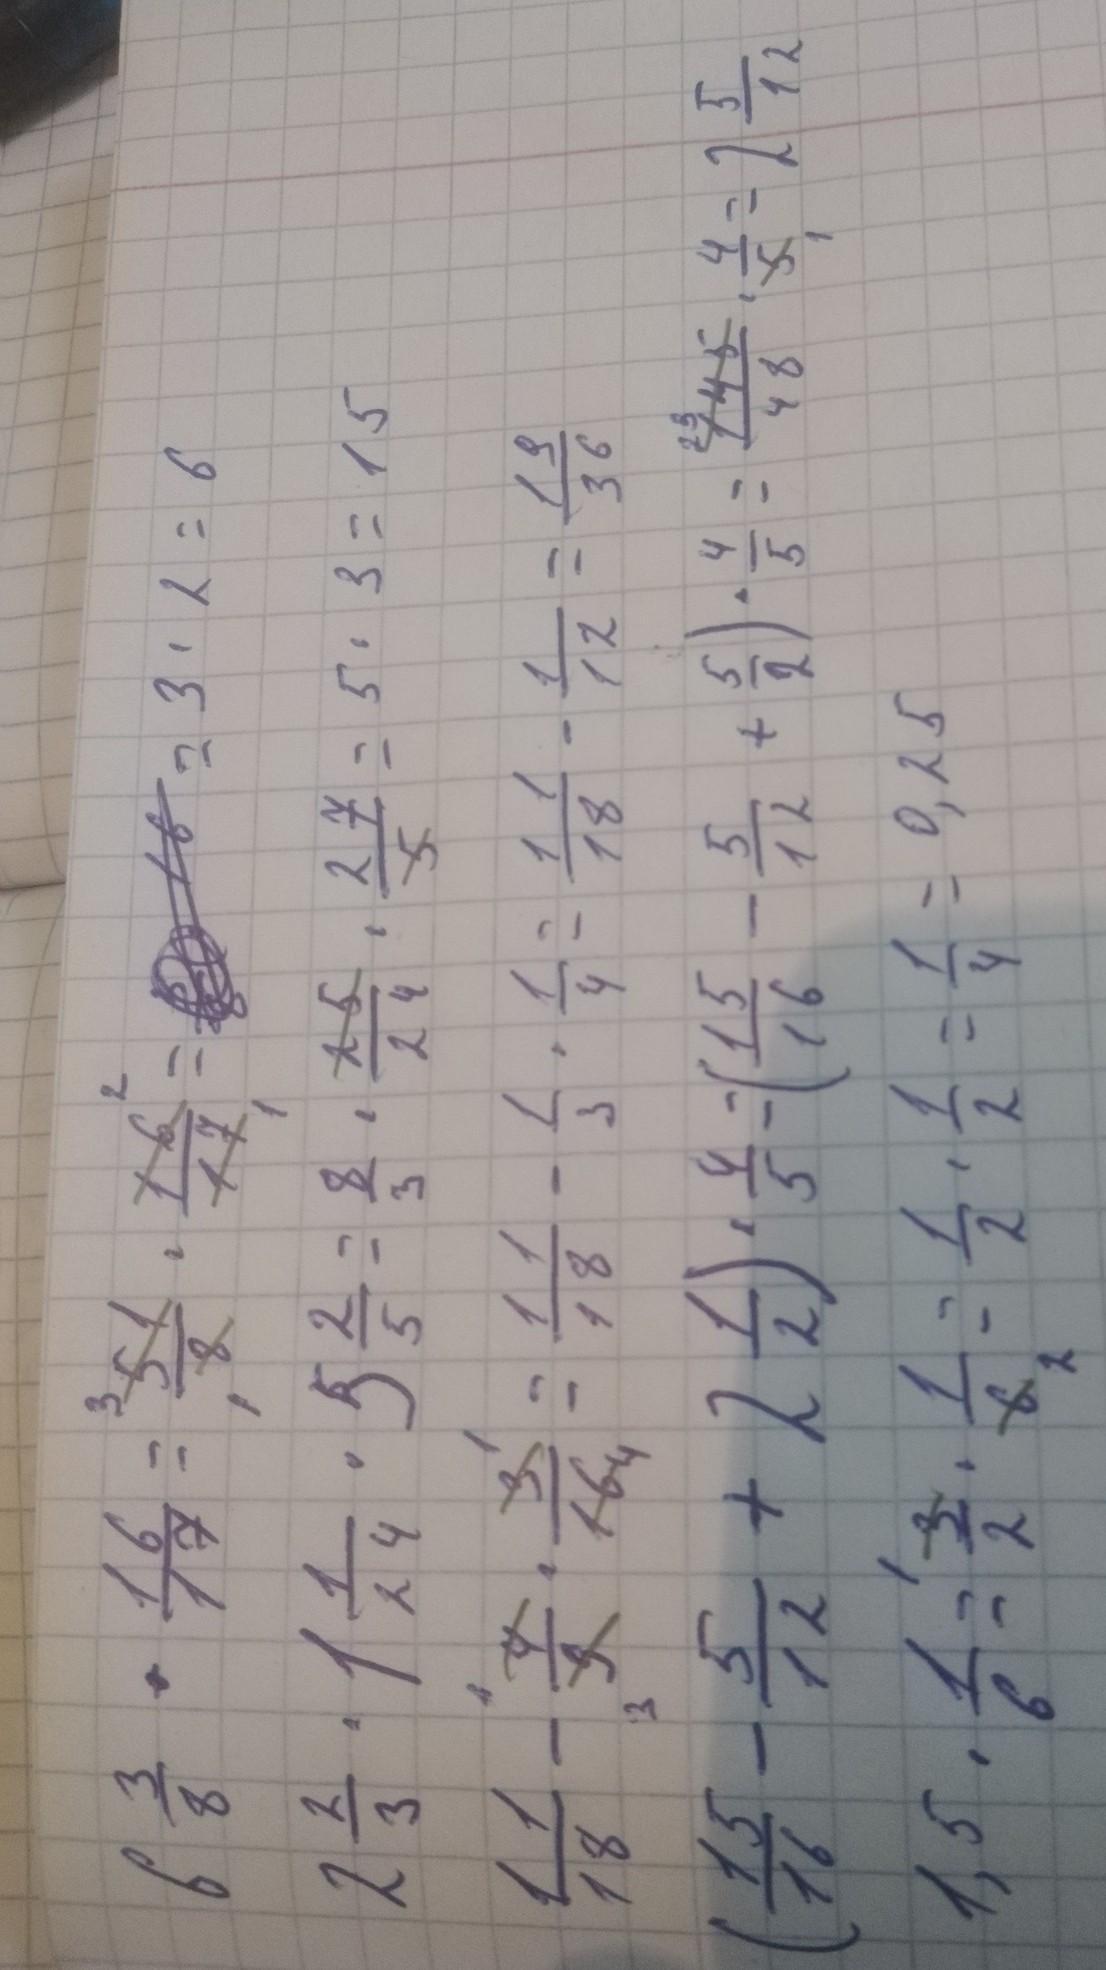 6 3/8 · 16/17 = 51/8 · 16/17 = = 3 · 2 = 6
2 2/3 · 1 1/24 · 5 2/5 = 8/3 · 25/24 · 27/5 = 5 · 3 = 15
11/18 - 4/9 · 3/16 = 11/18 - 1/3 · 1/4 = 11/18 - 1/12 = 19/36
(15/16 - 5/12 + 2 1/2) · 4/5 = (15/16 - 5/12 + 5/2) · 4/5 = 145/48 · 4/5 = 2 5/12
1,5 · 1/6 = 3/2 · 1/6 = 1/2 · 1/2 = 1/4 = 0,25